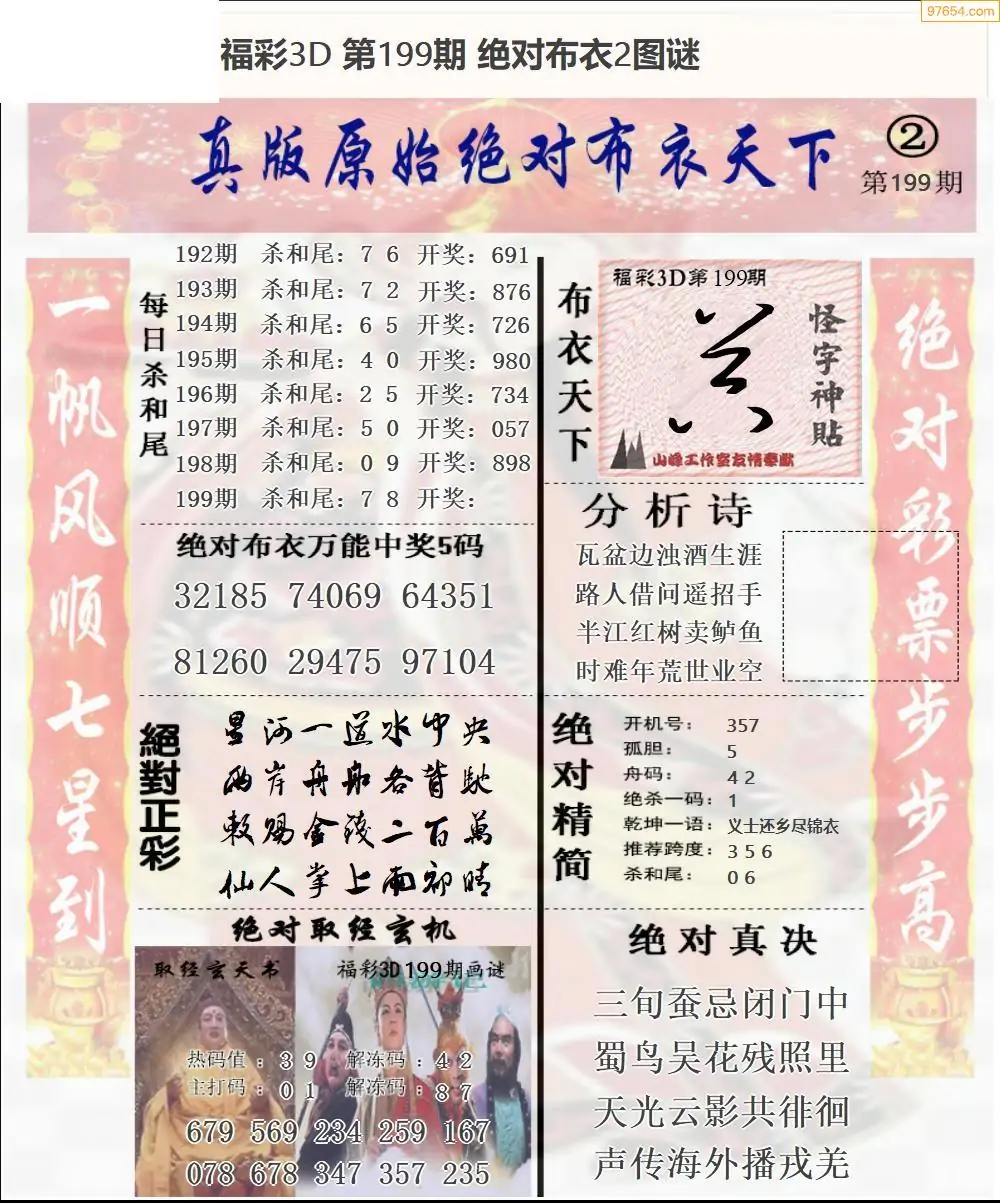 97654.com
福彩3D 第199期 绝对布衣2图谜
真版原始绝对布衣天下
②
第199期
一帆风顺七星到
每日杀和尾
192期 杀和尾：7 6 开奖：691
193期 杀和尾：7 2 开奖：876
194期 杀和尾：6 5 开奖：726
195期 杀和尾：4 0 开奖：980
196期 杀和尾：2 5 开奖：734
197期 杀和尾：5 0 开奖：057
198期 杀和尾：0 9 开奖：898
199期 杀和尾：7 8 开奖：
绝对布衣万能中奖5码
32185 74069 64351
81260 29475 97104
絕對正彩
星河一道水中央
两岸舟船各背馳
敕赐金錢二百萬
仙人掌上雨初晴
绝对取经玄机
取经玄天书
福彩3D199期画谜
热码值：3 9 解冻码：4 2
主打码：0 1 解冻码：8 7
679 569 234 259 167
078 678 347 357 235
布衣天下
福彩3D第199期
怪字神贴
山峰工作室友情奉献
分析诗
瓦盆边浊酒生涯
路人借问遥招手
半江红树卖鲈鱼
时难年荒世业空
绝对精简
开机号：357
孤胆：5
舟码：4 2
绝杀一码：1
乾坤一语：义士还乡尽锦衣
推荐跨度：3 5 6
杀和尾：0 6
绝对真决
三旬蚕忌闭门中
蜀鸟吴花残照里
天光云影共徘徊
声传海外播戎羌
绝对彩票步步高